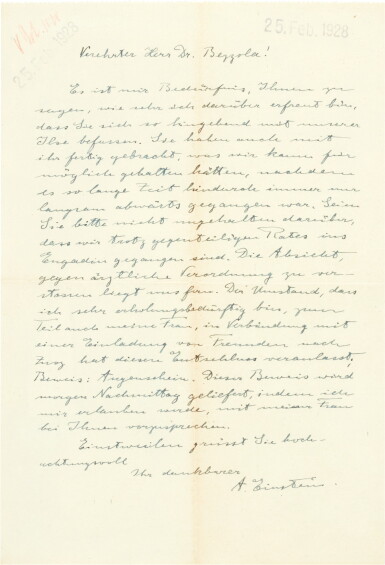 25. Feb. 1928
25. Feb. 1928
Verehrter Herr Dr. Bezzola!
Es ist mir Bedürfnis, Ihnen zu
sagen, wie sehr ich darüber erfreut bin,
dass Sie sich so hingebend mit unserer
Ilse befassen. Sie haben auch mit
ihr fertig gebracht, was wir kaum für
möglich gehalten hätten, nachdem
es so lange Zeit hindurch immer nur
langsam abwärts gegangen war. Seien
Sie bitte nicht ungehalten darüber,
dass wir trotz gegenteiligen Rates ins
Engadin gegangen sind. Die Absicht,
gegen ärztliche Verordnung zu ver-
stossen liegt uns fern. Der Umstand, dass
ich sehr erholungsbedürftig bin, zum
Teil auch meine Frau, in Verbindung mit
einer Einladung von Freunden nach
Zuoz hat diesen Entschluss veranlasst,
Beweis: Augenschein. Dieser Beweis wird
morgen Nachmittag geliefert, indem ich
mir erlauben werde, mit meiner Frau
bei Ihnen vorzusprechen.
Einstweilen grüsst Sie hoch-
achtungsvoll
Ihr dankbarer
A. Einstein.